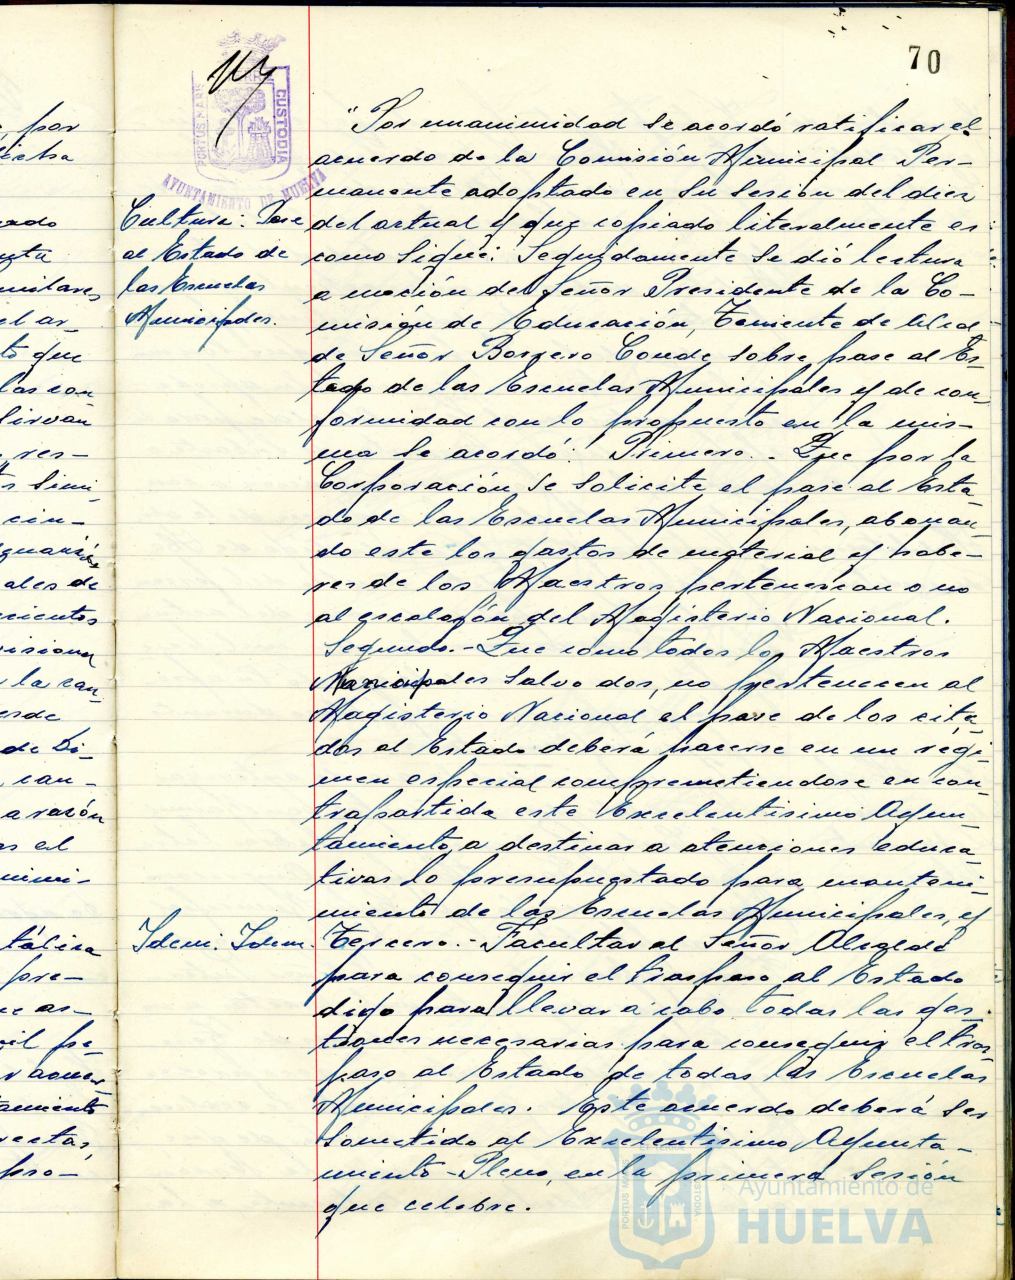 70
PORTUS MARIS
CUSTODIA
AYUNTAMIENTO DE HUELVA
Cultura: Pase
al Estado de
las Escuelas
Municipales.
"Por unanimidad se acordó ratificar el
acuerdo de la Comisión Municipal Per-
manente adoptado en su sesión del diez
del actual y que copiado literalmente es
como sigue: Seguidamente se dió lectura
a moción del Señor Presidente de la Co-
misión de Educación, Teniente de Alcal
de Señor Borrero Conde sobre pase al Es-
tado de las Escuelas Municipales y de con-
formidad con lo propuesto en la mis-
ma se acordó: Primero.- Que por la
Corporación se solicite el pase al Esta-
do de las Escuelas Municipales, abonan-
do este los gastos de material y habe-
res de los Maestros pertenezcan o no
al escalafón del Magisterio Nacional.
Segundo.- Que como todos los Maestros
Municipales salvo dos, no pertenecen al
Magisterio Nacional el pase de los cita-
dos al Estado deberá hacerse en un régi-
men especial comprometiendose en con-
trapartida este Excelentisimo Ayun-
tamiento a destinar a atenciones educa-
tivas lo presupuestado para manteni-
miento de las Escuelas Municipales, y
Idem. Idem.
Tercero.- Facultar al Señor Alcalde
para conseguir el traspaso al Estado
digo para llevar a cabo todas las ges-
tiones necesarias para conseguir el tras-
paso al Estado de todas las Escuelas
Municipales. Este acuerdo deberá ser
sometido al Excelentisimo Ayunta-
miento-Pleno, en la primera sesión
que celebre.
por
dicha
militares
el ar-
to que
las con-
sirvan
res-
cin-
ales de
la can-
de Di-
can-
a razón
el
pre-
as-
pro-
Ayuntamiento de
HUELVA